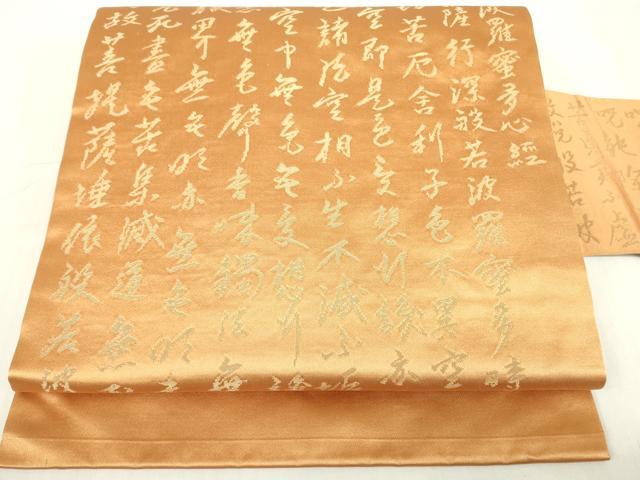 波羅蜜多心經
薩行深般若波羅蜜多時
苦厄舍利子色不異空
空即是色受想行識亦
諸法空相不生不滅不垢
空中無色無受想行識
無色聲香味觸法無
界無無明亦無無明盡
死盡無苦集滅道無
故菩提薩埵依般若波
不虛
故說般若波